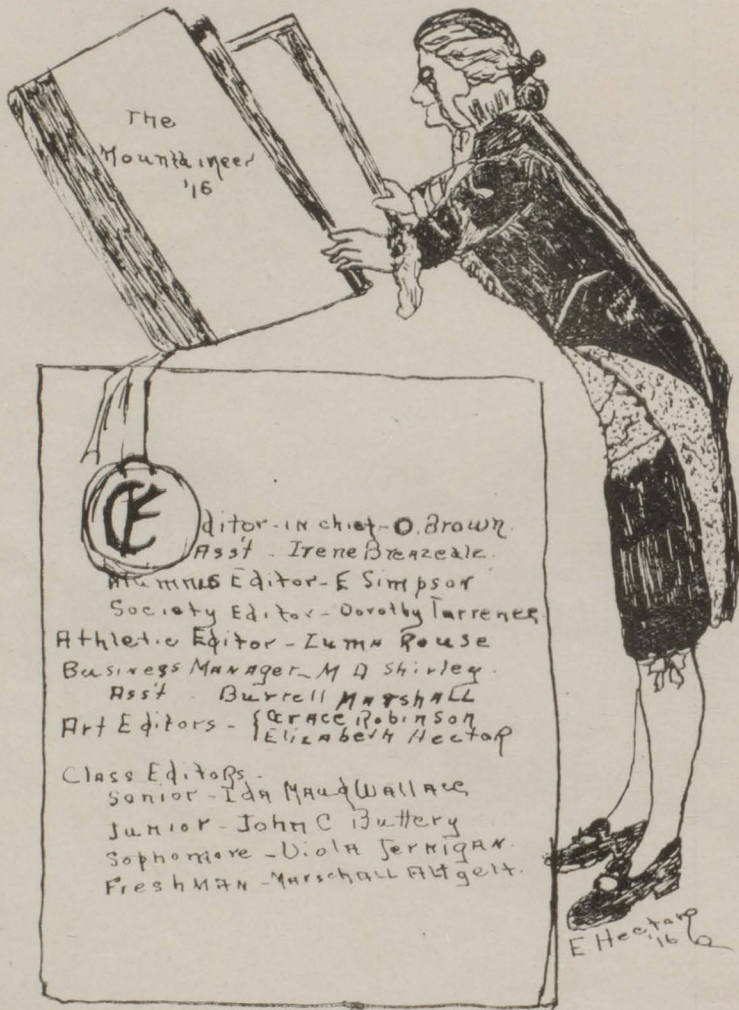 The
Mountaineer
'16
Editor-in chief-O. Brown.
Ass't - Irene Breazeale.
Alumnus Editor-E Simpson
Society Editor-Dorothy Turrenes
Athletic Editor-Luma Rouse
Business Manager-M D Shirley.
Ass't Burrell Marshall
Art Editors - {Grace Robinson
Elizabeth Hector
Class Editors-
Senior-Ida Maud Wallace
Junior-John C Buttery
Sophomore-Viola Jernigan.
Freshman-Marschall Altgelt.
E Hector
'16